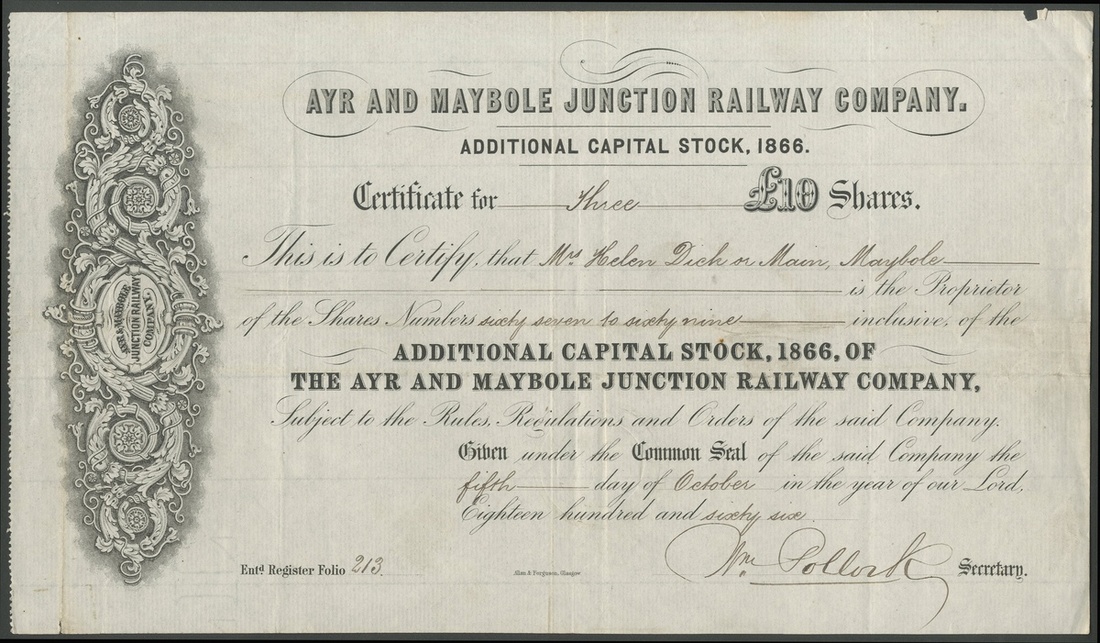 AYR AND MAYBOLE JUNCTION RAILWAY COMPANY.
ADDITIONAL CAPITAL STOCK, 1866.
Certificate for Three £10 Shares.
This is to Certify, that Mrs Helen Dick or Main, Maybole
is the Proprietor
of the Shares Numbers sixty seven to sixty nine inclusive, of the
ADDITIONAL CAPITAL STOCK, 1866, OF
THE AYR AND MAYBOLE JUNCTION RAILWAY COMPANY,
Subject to the Rules, Regulations and Orders of the said Company.
Given under the Common Seal of the said Company the
fifth day of October in the year of our Lord,
Eighteen hundred and sixty six
Wm Pollock Secretary.
Entd Register Folio 213.
Allan & Ferguson, Glasgow
AYR & MAYBOLE
JUNCTION RAILWAY
COMPANY.